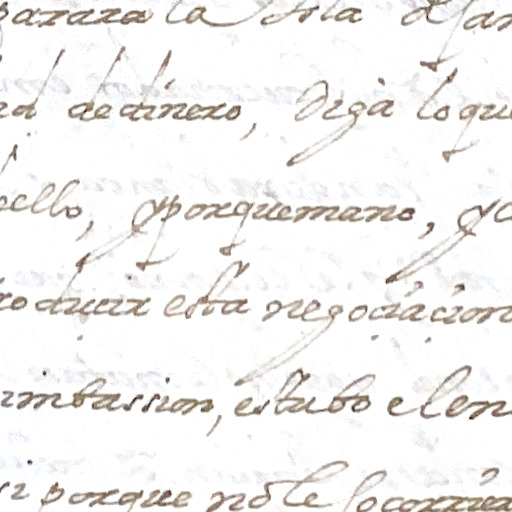 parara la Isla de San
ad de dinero, diga lo que
ello, y porque mano, y c
roducir esta negociacion
imbassion, estubo el en
si porque no le socorrier